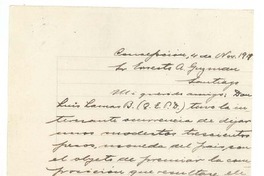 Concepción, 4 de Nov. 1919
Sr. Ernesto A. Guzmán
Santiago
Mi querido amigo: Don
Luis Lamas B. (Q.E.P.D.) tuvo la in
teresante ocurrencia de dejar
unos modestos trescientos
pesos, moneda del país, con
el objeto de premiar la com
posición que resultare el